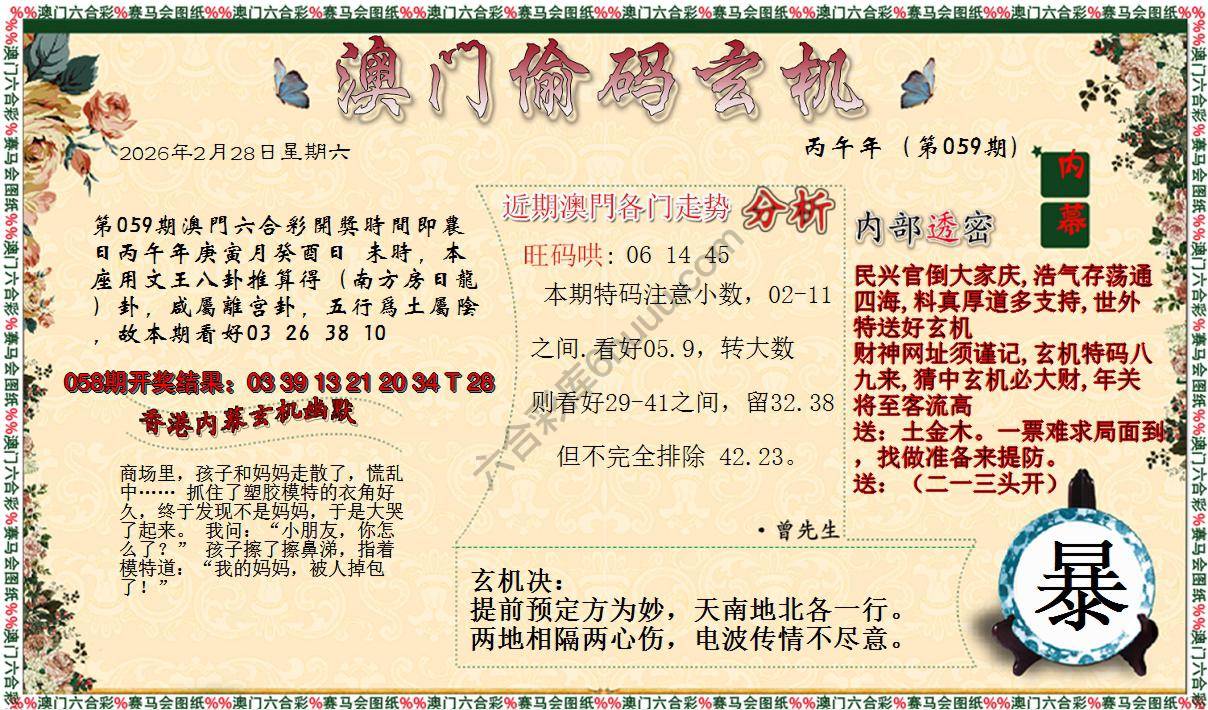 %%澳门六合彩%赛马会图纸%%澳门六合彩%赛马会图纸%%澳门六合彩%赛马会图纸%%澳门六合彩%赛马会图纸%%澳门六合彩%赛马会图纸%%澳门六合彩%赛马会图纸%%
澳门偷码玄机
2026年2月28日星期六
丙午年（第059期）
内幕
第059期澳門六合彩開獎時間即農
日丙午年庚寅月癸酉日 未時，本
座用文王八卦推算得（南方房日龍
）卦，咸屬離宫卦，五行爲土屬陰
，故本期看好03 26 38 10
058期开奖结果：03 39 13 21 20 34 T 28
香港内幕玄机幽默
商场里，孩子和妈妈走散了，慌乱
中…… 抓住了塑胶模特的衣角好
久，终于发现不是妈妈，于是大哭
了起来。 我问：“小朋友，你怎
么了？” 孩子擦了擦鼻涕，指着
模特道：“我的妈妈，被人掉包
了！”
近期澳門各门走势 分析
旺码哄: 06 14 45
本期特码注意小数，02-11
之间.看好05.9，转大数
则看好29-41之间，留32.38
但不完全排除 42.23。
·曾先生
内部透密
民兴官倒大家庆,浩气存荡通
四海,料真厚道多支持,世外
特送好玄机
财神网址须谨记,玄机特码八
九来,猜中玄机必大财,年关
将至客流高
送：土金木。一票难求局面到
，找做准备来提防。
送：（二一三头开）
玄机决：
提前预定方为妙，天南地北各一行。
两地相隔两心伤，电波传情不尽意。
暴
%%澳门六合彩%赛马会图纸%%澳门六合彩%赛马会图纸%%澳门六合彩%赛马会图纸%%澳门六合彩%赛马会图纸%%澳门六合彩%赛马会图纸%%澳门六合彩%赛马会图纸%%